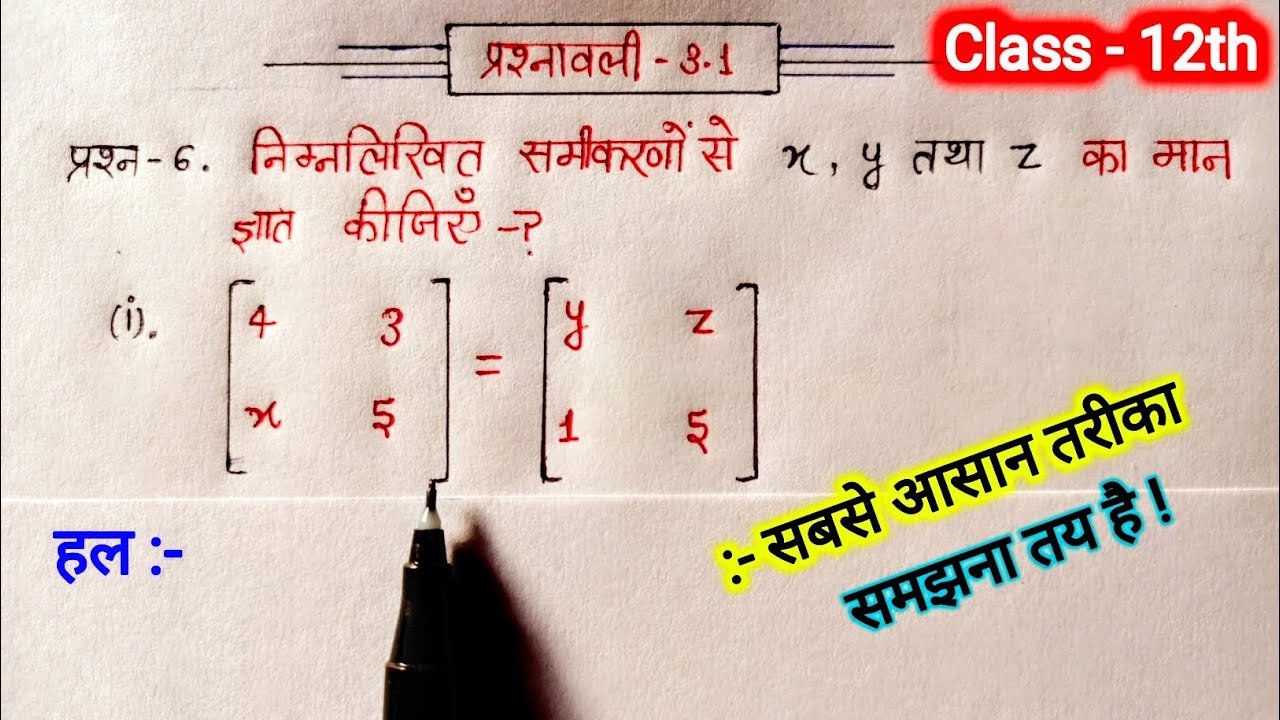 प्रश्नावली - 3.1
Class - 12th
प्रश्न - 6. निम्नलिखित समीकरणों से x, y तथा z का मान
ज्ञात कीजिएँ -?
(i). [4 3] = [y z]
[x 5] [1 5]
:- सबसे आसान तरीका
समझना तय है !
हल :-